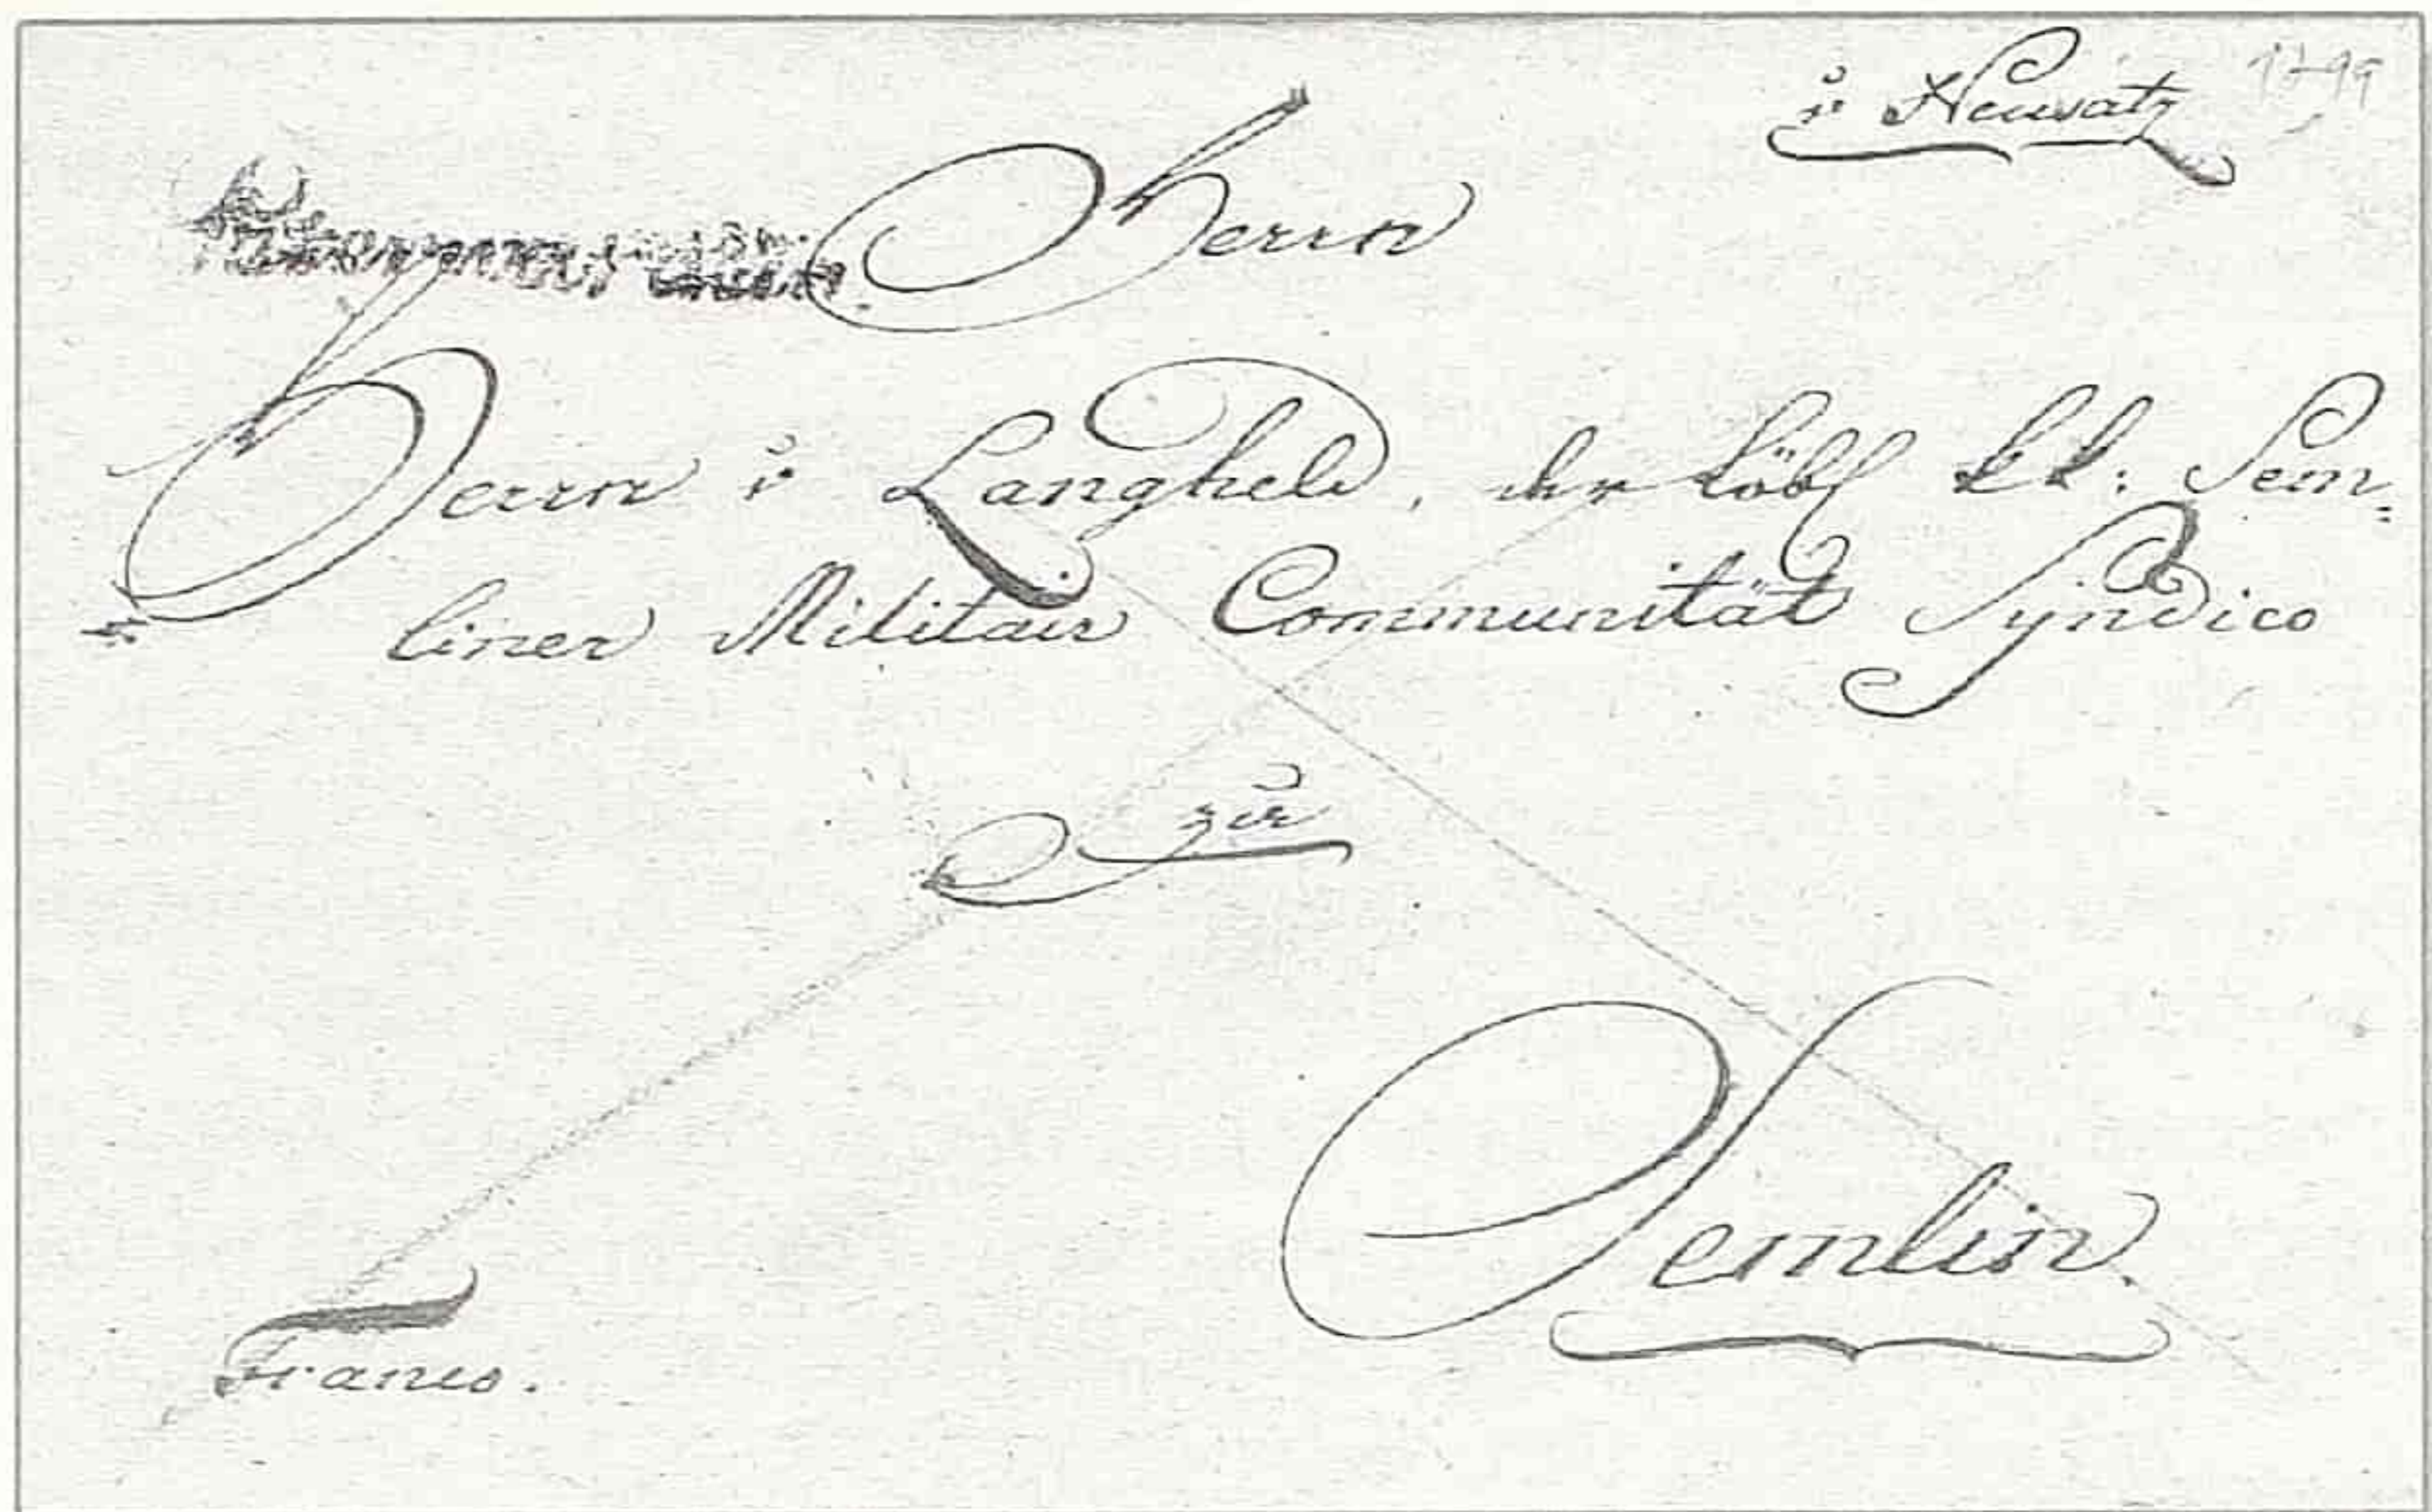 v Neusatz 1799
Herrn
Herrn v Langheld, der löbl kk: Sem=
liner Militair Communität Syndico
zu
Semlin.
Franco.